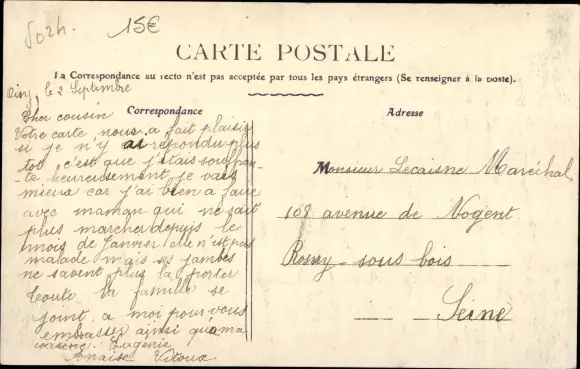 15€
CARTE POSTALE
La Correspondance au recto n'est pas acceptée par tous les pays étrangers (Se renseigner à la poste).
le 2 Septembre
Correspondance
Cher cousin
Votre carte nous a fait plaisir
si je n'y ai répondu plus
tot c'est que j'étais souffran-
te heureusement je vais
mieux car j'ai bien a faire
avec maman qui ne sait
plus marcher depuis le
mois de Janvier elle n'est pas
malade mais ses jambes
ne savent plus la porter
Toute la famille se
joint a moi pour vous
embrasser ainsi que ma
cousine Eugénie
Anaise
Adresse
Monsieur Lecaisne Maréchal
108 avenue de Nogent
Rosny - sous bois
Seine